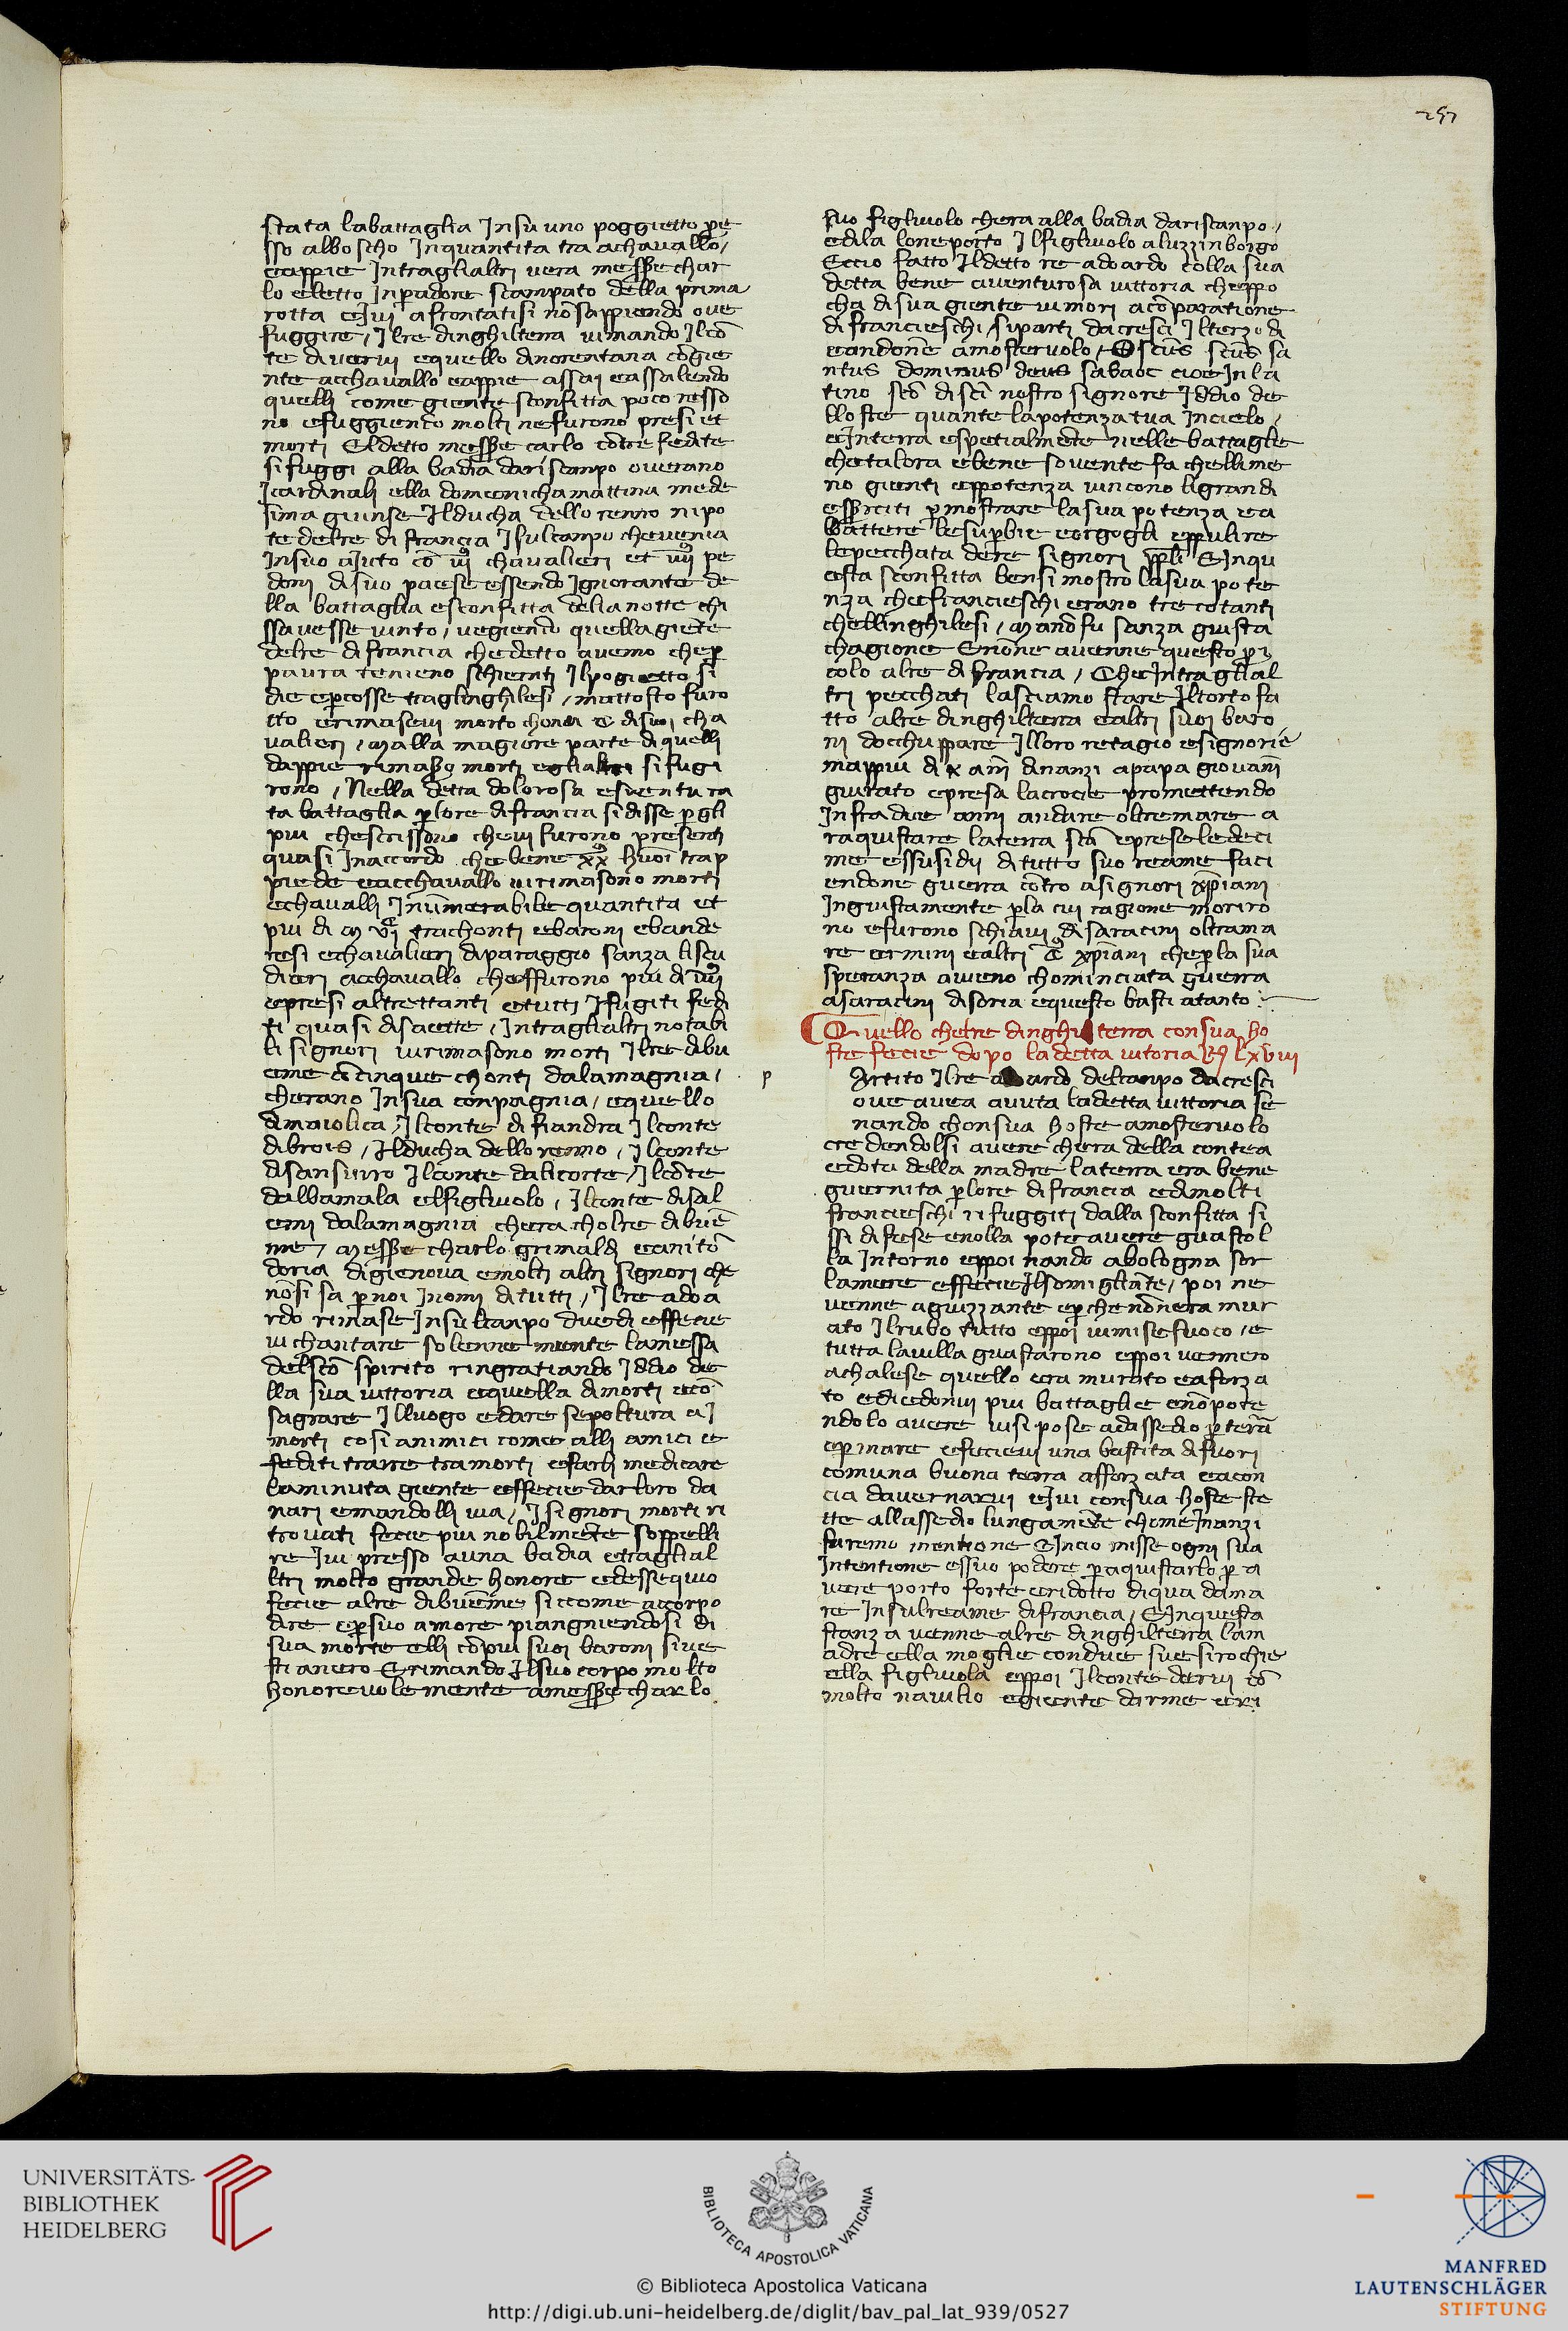 257
stata labattaglia Jnsu uno poggietto pe
sso albo scho Jnquantita tra achavallo /
eappie Jntraglialtri vera messe char
lo eletto Jnpadore scampato della prima
rotta eJui afrontatisi nōsappiendo oue
fuggire / Jlre dinghilterra uimando Jlcō
te diuerui equello dinorentana cōgie
nte acchauallo eappie assai eassalendo
quelli come giente sconfitta poco resso
no efuggiendo molti nefurono presi et
morti Eldetto messe carlo cōtre fedite
sifuggi alla badia dariscanpo ouerano
Jcardinali ella domenicha mattina mede
sima giunse Jlducha dello renno nipo
te delre di francia Jsulcanpo cheuenia
Jnsuo aJuto cō iij chavalieri et iiij pe
doni disuo paese essendo Jgnorante de
lla battaglia esconfitta dela notte chi
ssauesse uinto / uegiendo quella giēte
delre di francia chedetto auemo chep
paura tenieno schierati Jlpogietto si
die epcosse traglinghilesi / mattosto furo
tto erimaseui morto chonti e disuoi cha
valieri / Malla magiore parte diquelli
dappie rimaso morti eglialtri sifugi
rono / Nella detta dolorosa esuentura
ta battaglia plore difrancia sidisse pgli
piu chescrissono cheui furono presenti
quasi Jnaccordo chebene xx huoī trap
piede eacchauallo uirimasono morti
echaualli Jnūmerabile quantita et
piu di M vj trachonti ebaroni ebande
resi echaualieri diparaggio sanza liscu
dieri acchauallo cheffurono piu di iiij
epresi altrettanti etutti Jfugiti fedi
ti quasi disaette / Jntraglialtri notabi
li signori uirimasono morti Jlre dibu
eme cōcinque chonti dalamagnia /
cherano Jnsua compagnia / equello
dimaiolica / Jlconte di fiandra Jlconte
dibrois / Jlducha dello renno / Jlconte
disansurro Jlconte dalicorte / Jlcōte
dalbamala elfigliuolo / Jlconte disal
emi dalamagnia chera cholre dibuē
me / Messe charlo grimaldi eanitō
doria digienova emolti altri signori che
nōsi sa pnoi Jnomi di tutti / Jlre adoa
rdo rimase Jnsulcanpo duedi effecie
ui chantare solennemente lamessa
delscō spirito ringratiando Jddio de
lla sua uittoria equella dimorti ecō
sagrare Jlluogo edare sepoltura aJ
morti cosi animici come alli amici e
fediti trarre tramorti efarli medicare
laminuta giente effecie darloro da
nari emandolli uia / Jsignori morti ri
trouati fecie piu nobilmēte soppelli
re Jui presso auna badia etraglial
ltri molto grande honore edessequio
fecie alre dibuēme siccome accorpo
dire epsuo amore piangniendosi di
sua morte elli cōpiu suoi baroni sive
stianero Erimando Jlsuo corpo molto
honoreuolemente amesse charlo
suo figliuolo chera alla badia dariscanpo /
edila loneporto Jlfigliuolo aluzzinborgo
Eccio fatto Jldetto re adoardo colla sua
detta bene auenturosa uittoria cheppo
cha disua giente uimori acōparatione
difrancieschi / siparti dacresci Jlterzo di
eandonē amostervolo / O scūs scūs sa
ntus dominus deus sabaoc cioe Jnla
tino scō disci nostro signore Jddio de
lloste quante lapotenza tua Jncielo /
eJnterra espetialmēte nelle battaglie
chetalora ebene souente fa chellime
no gienti eppotenza uincono ligrandi
esserciti pmostrare lasua potenza ea
battere lesuplie eorgogli eppulire
lepecchata dere signori ppli EJnqu
esta sconfitta bensi mostro lasua pote
nza chefrancieschi erano trecotanti
chellinghilesi / Manō fu sanza giusta
chagione Enōne auenne questo pi
colo alre di francia / CheJntraglial
tri pecchati lasciamo stare Jltorto fa
tto alre dinghilterra ealtri suoi baro
ni docchuppare Jlloro retagio esignorie
mappiu di x anni dinanzi apapa giovanī
giurato epresa lacrocie promettendo
Jnfra due anni andare oltremare a
raquistare laterra scā epreseledeci
me essusidii di tutto suo reame faci
endone guerra cōtro asignori xpiani
Jngiustamente pla cui cagione moriro
no efurono schiaui disaracini oltrama
re ermini ealtri C xpiani chepla sua
speranza aueno chominciata guerra
asaracini disoria equesto basti atanto
Quello chelre dinghilterra consua ho
ste fecie dopo ladetta uitoria lxviij
p
Artito Jlre adoardo delcanpo dacresci
oue auea auuta ladetta uittoria se
nando chonsua hoste amosteruolo
credendolsi auere chera della contea
edota della madre laterra era bene
guernita plore difrancia edimolti
francieschi rifuggiti dalla sconfitta si
ssi difese enolla pote auere guastol
la Jntorno eppoi nando abologna sor
lamare effecie Jlsomigliāte / poi ne
uenne aguizzante eperche nōnera mur
ato Jlrubo tutto eppoi uimise fuoco / e
tutta lauilla guastarono eppoi uennero
achalese quello era murato eaforza
to ediedonui piu battaglie enōpote
ndolo auere uisi pose adassedio pterā
epmare efecieui una bastita difuori
comuna buona terra afforzata eacon
cia dauernarui eJui consua hoste ste
tte allassedio lungamēte chomeJnanzi
faremo mentione EJncio misse ogni sua
Jntentione essuo podere paquistarlo pa
uere porto forte eridotto diqua dama
re Jnsulreame difrancia / EJnquesta
stanza uenne alre dinghilterra lam
adre ella moglie condue sue sirochie
ella figliuola eppoi Jlconte deruj cō
molto nauilio egiente darme eri
UNIVERSITÄTS-
BIBLIOTHEK
HEIDELBERG
BIBLIOTECA APOSTOLICA VATICANA
© Biblioteca Apostolica Vaticana
http://digi.ub.uni-heidelberg.de/diglit/bav_pal_lat_939/0527
MANFRED
LAUTENSCHLÄGER
STIFTUNG